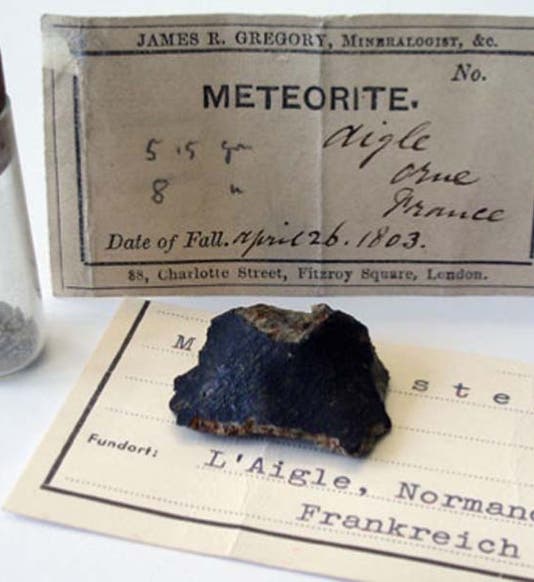 JAMES R. GREGORY, MINERALOGIST, &c.
No.
METEORITE.
5.15 gm
Aigle
8 "
Orne
France
Date of Fall. April 26. 1803.
88, Charlotte Street, Fitzroy Square, London.
M
ste
Fundort:
L'Aigle, Norman
Frankreich